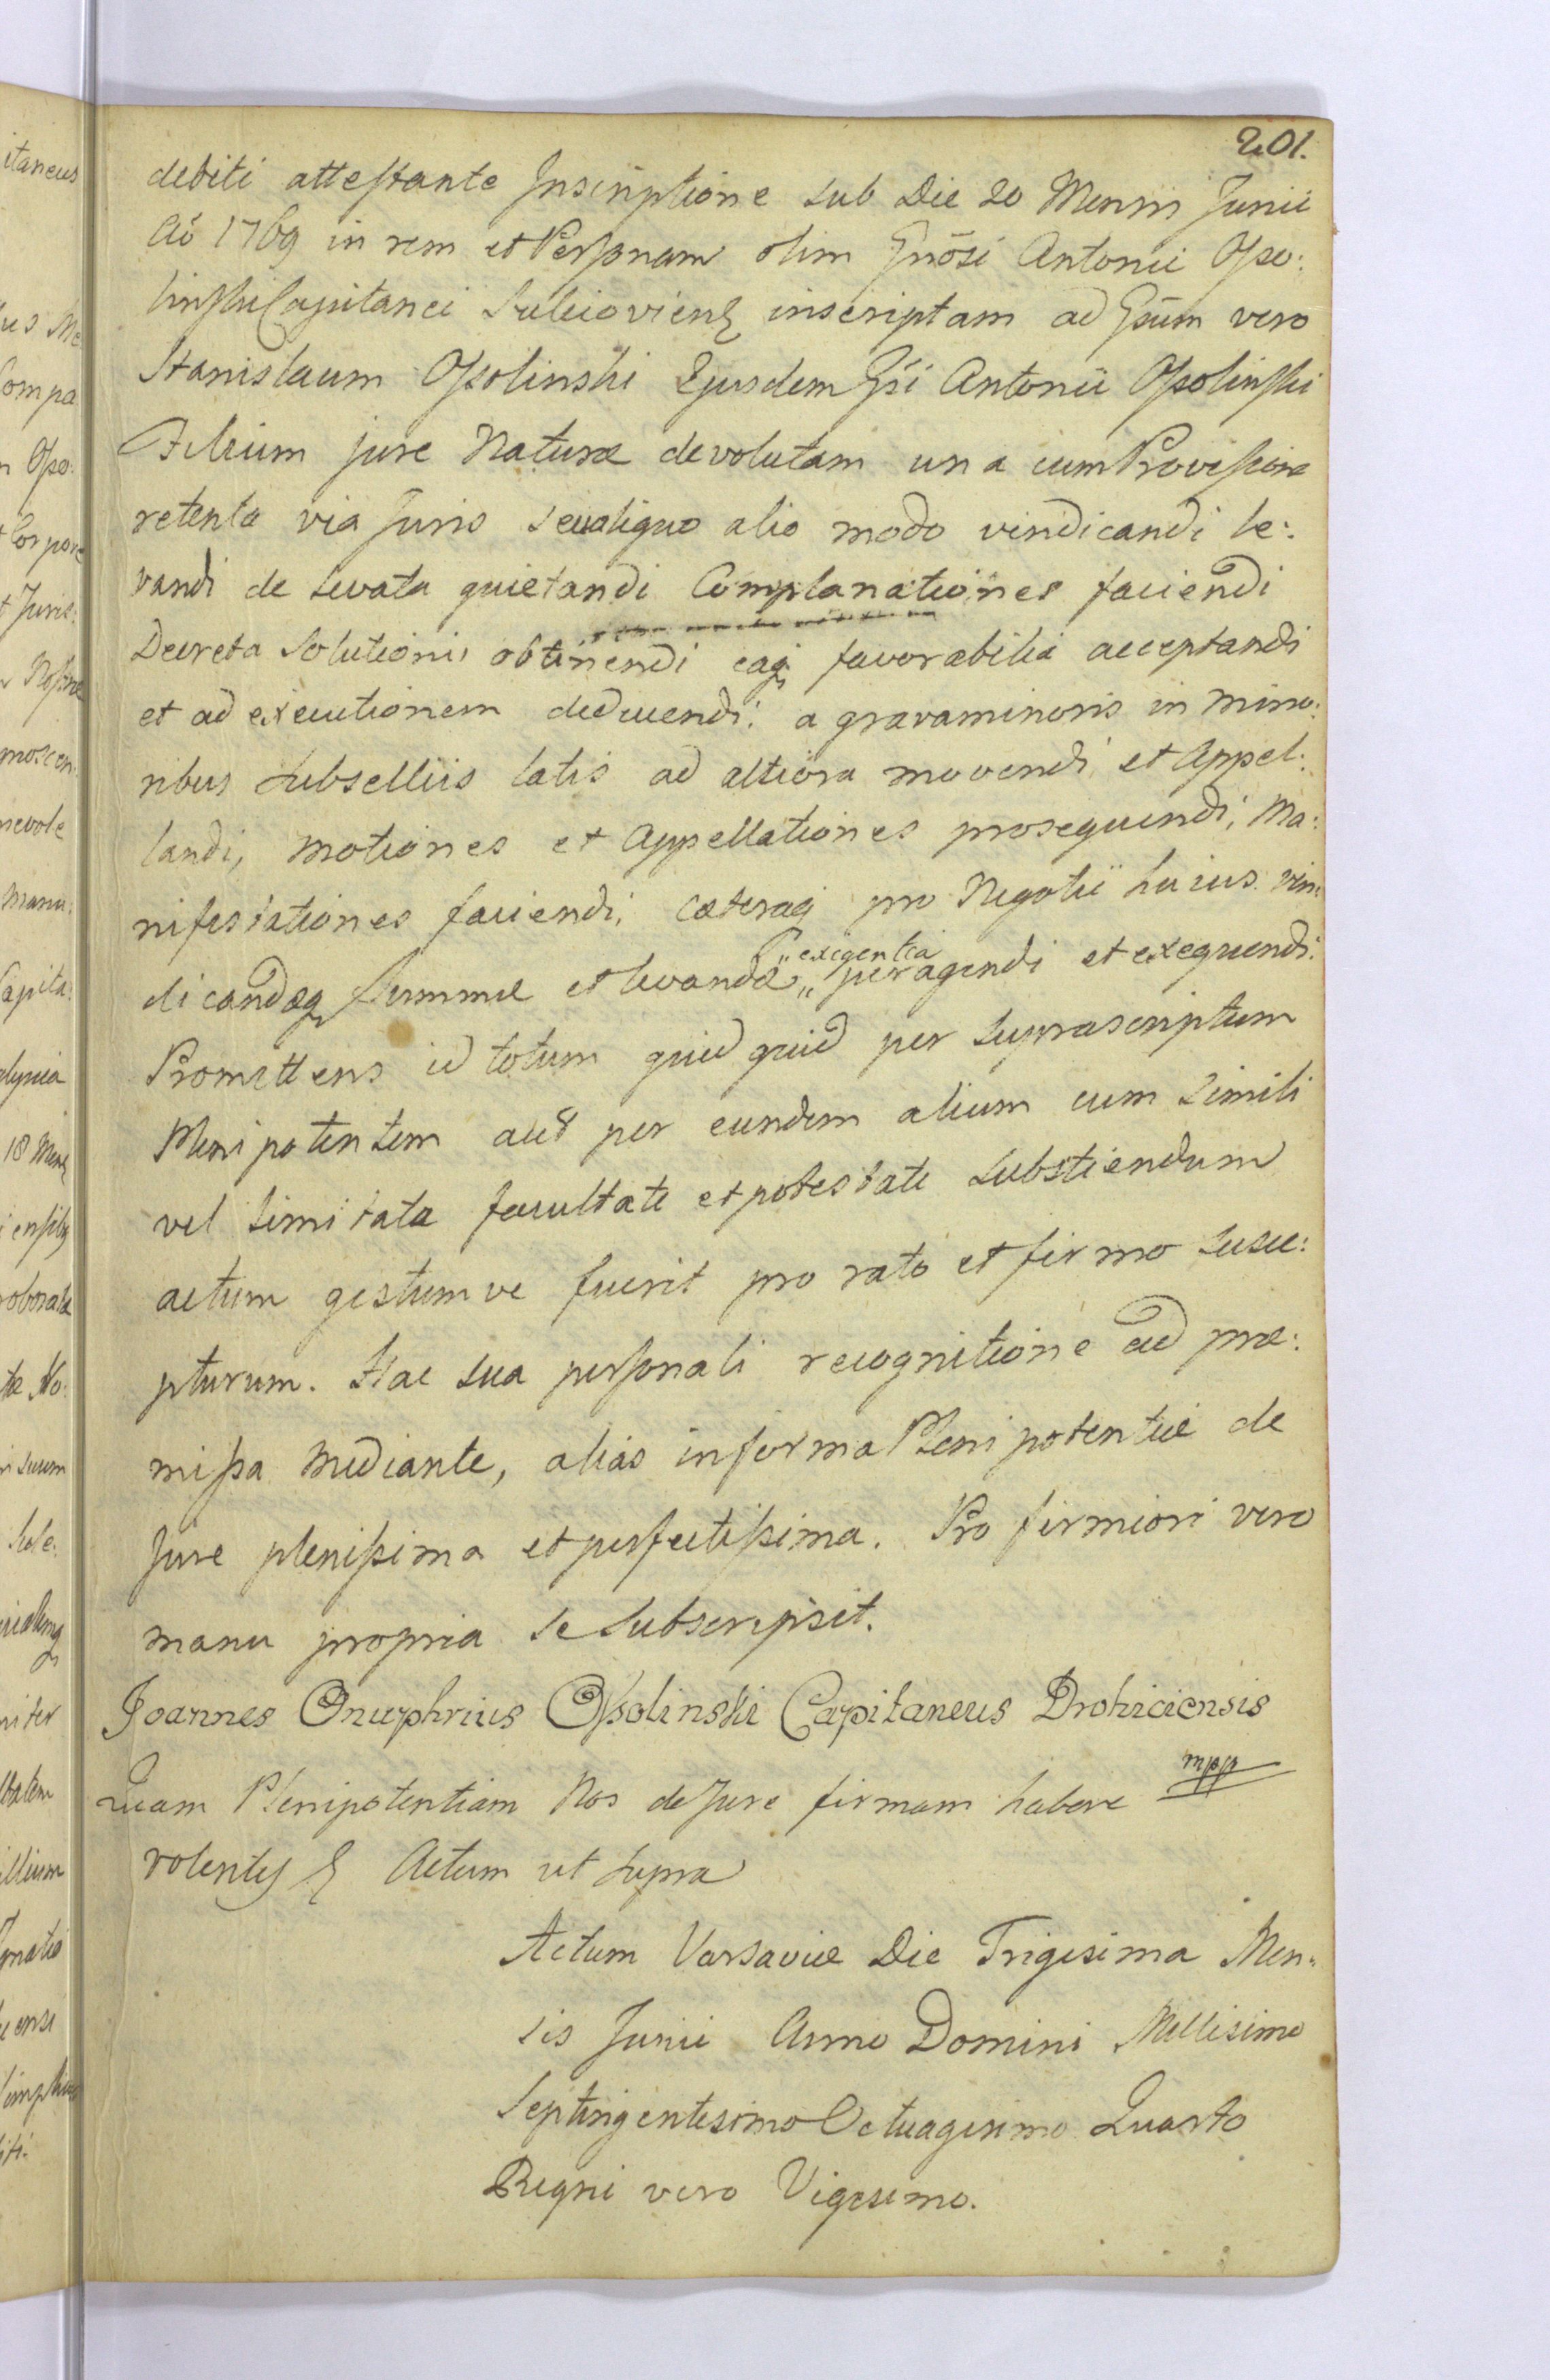 201.
debiti attestante Inscriptione sub Die 20 Mensis Junii
Aõ 1769 in rem et Personam olim Gnõsi Antonii Osso:
linski Capitanei Sulejoviens inscriptam ad Gsũm vero
Stanislaum Ossolinski Ejusdem Gsi Antonii Ossolinski
Filium jure Naturæ devolutam una cum Provisione
retenta via Juris seu aliquo alio modo vindicandi le:
vandi de levata quietandi Complanationes faciendi
Decreta Solutionis obtinendi eaq favorabilia acceptandi
et ad executionem deducendi: a gravaminoris in mino:
ribus Subselliis latis ad altiora movendi et Appel:
landi, Motiones et Appellationes prosequendi, Ma:
nifestationes faciendi, cæteraq pro Negotii huius vin:
dicandæq Summæ et levandæ „exigentia„ peragendi et exequendi.
Promittens id totum quid quid per suprascriptum
Plenipotentem aut per eundem alium cum simili
vel limitata facultate et potestate substiendum
actum gestumve fuerit pro rato et firmo susce:
pturum. Hac sua personali recognitione ad præ:
missa mediante, alias in forma Plenipotentiæ de
Jure plenissima et perfectissima. Pro firmiori vero
manu propria se subscripsit.
Joannes Onuphrius Ossolinski Capitaneus Drohiciensis
mpp
Quam Plenipotentiam Nos de Jure firmam habere
volentes Actum ut supra
Actum Varsaviæ Die Trigesima Men:
sis Junii Anno Domini Millesimo
Septingentesimo Octuagesimo Quarto
Regni vero Vigesimo.